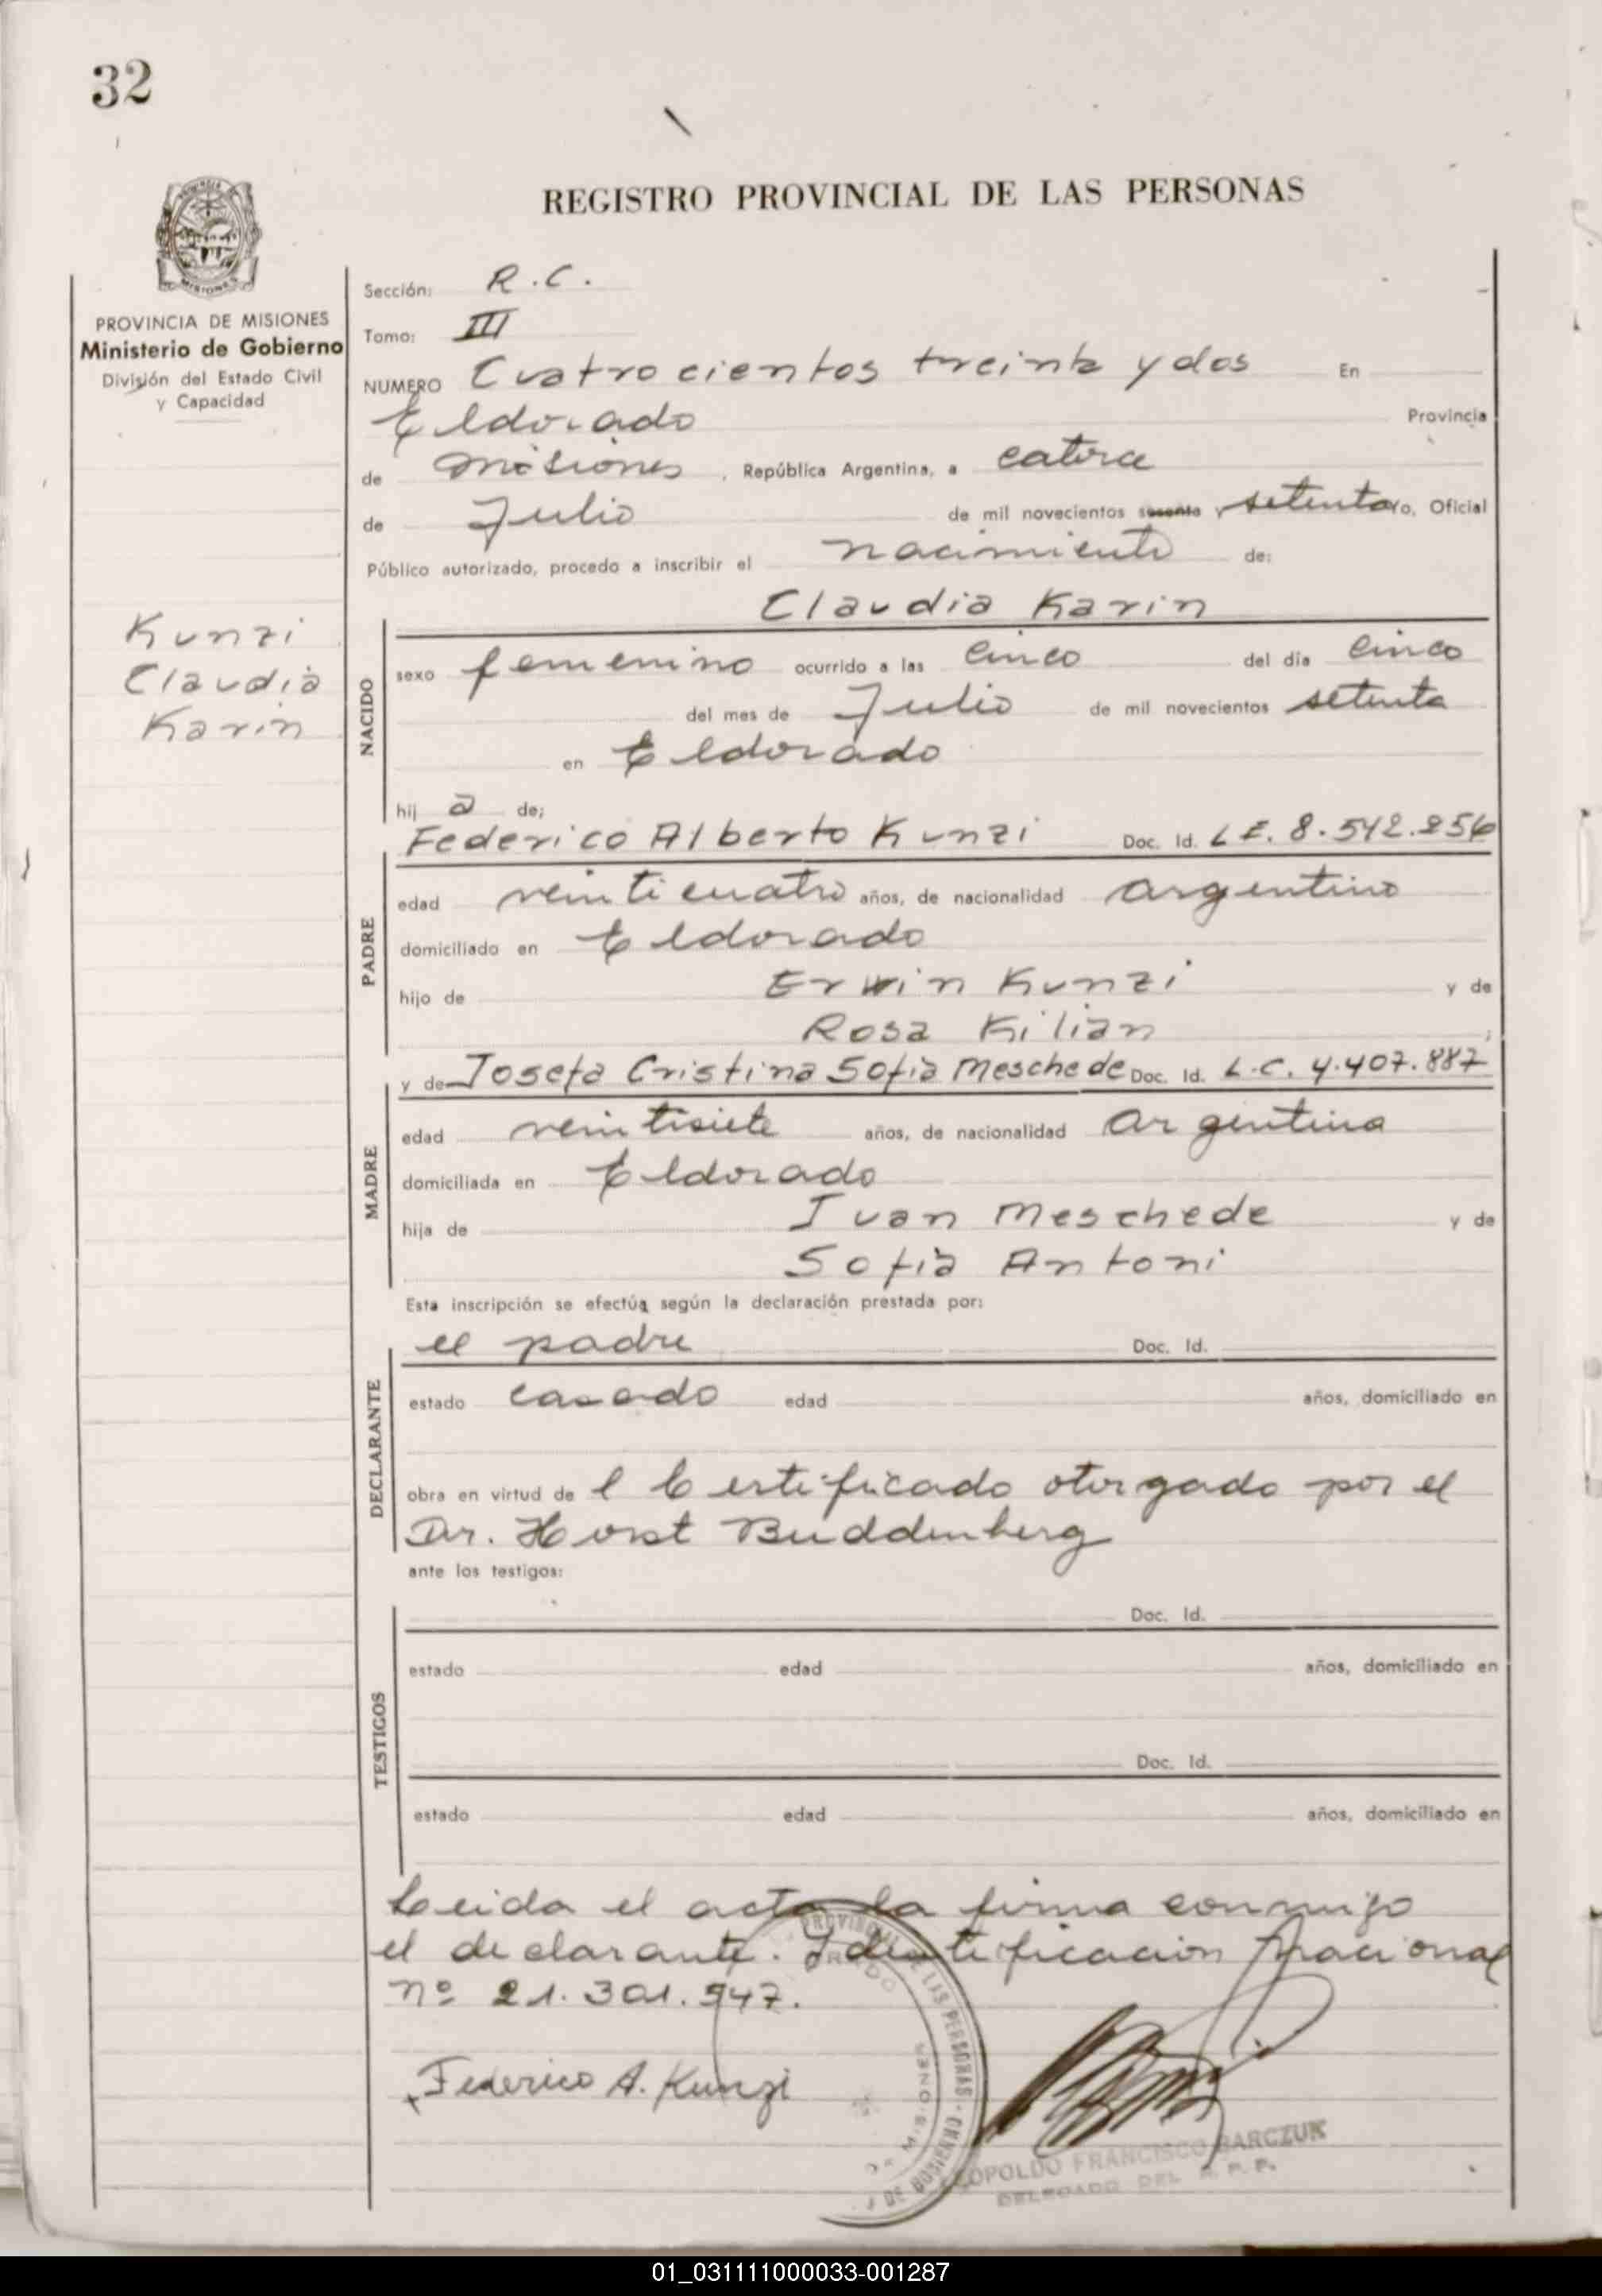 32
REGISTRO PROVINCIAL DE LAS PERSONAS
MISIONES
PROVINCIA DE MISIONES
Ministerio de Gobierno
División del Estado Civil
y Capacidad
Kunzi
Claudia
Karin
Sección: R.C.
Tomo: III
NUMERO Cuatrocientos treinta y dos En
Eldorado Provincia
de Misiones, República Argentina, a catorce
de Julio de mil novecientos sesenta y setenta yo, Oficial
Público autorizado, procedo a inscribir el nacimiento de:
Claudia Karin
NACIDO
sexo femenino ocurrido a las cinco del día cinco
del mes de Julio de mil novecientos setenta
en Eldorado
hij a de;
Federico Alberto Kunzi Doc. Id. L.E. 8.542.256
PADRE
edad veinticuatro años, de nacionalidad argentino
domiciliado en Eldorado
hijo de Erwin Kunzi y de
Rosa Kilian;
y de Josefa Cristina Sofia Meschede Doc. Id. L.C. 4.407.887
MADRE
edad veintisiete años, de nacionalidad argentina
domiciliada en Eldorado
hija de Ivan Meschede y de
Sofia Antoni
Esta inscripción se efectúa según la declaración prestada por:
el padre Doc. Id.
DECLARANTE
estado casado edad años, domiciliado en
obra en virtud de l Certificado otorgado por el
Dr. Horst Buddenberg
ante los testigos:
Doc. Id.
TESTIGOS
estado edad años, domiciliado en
Doc. Id.
estado edad años, domiciliado en
Leida el acta la firma conmigo
el declarante. Identificación Nacional
nº 21.301.547.
Federico A. Kunzi
LEOPOLDO FRANCISCO BARCZUK
DELEGADO DEL R. P. P.
01_031111000033-001287